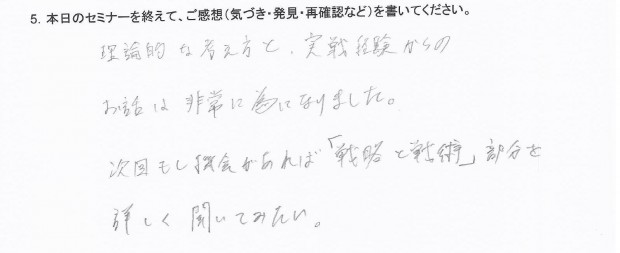 5. 本日のセミナーを終えて、ご感想（気づき・発見・再確認など）を書いてください。
理論的な考え方と、実戦経験からの
お話は非常に為になりました。
次回もし機会があれば「戦略と戦術」部分を
詳しく聞いてみたい。